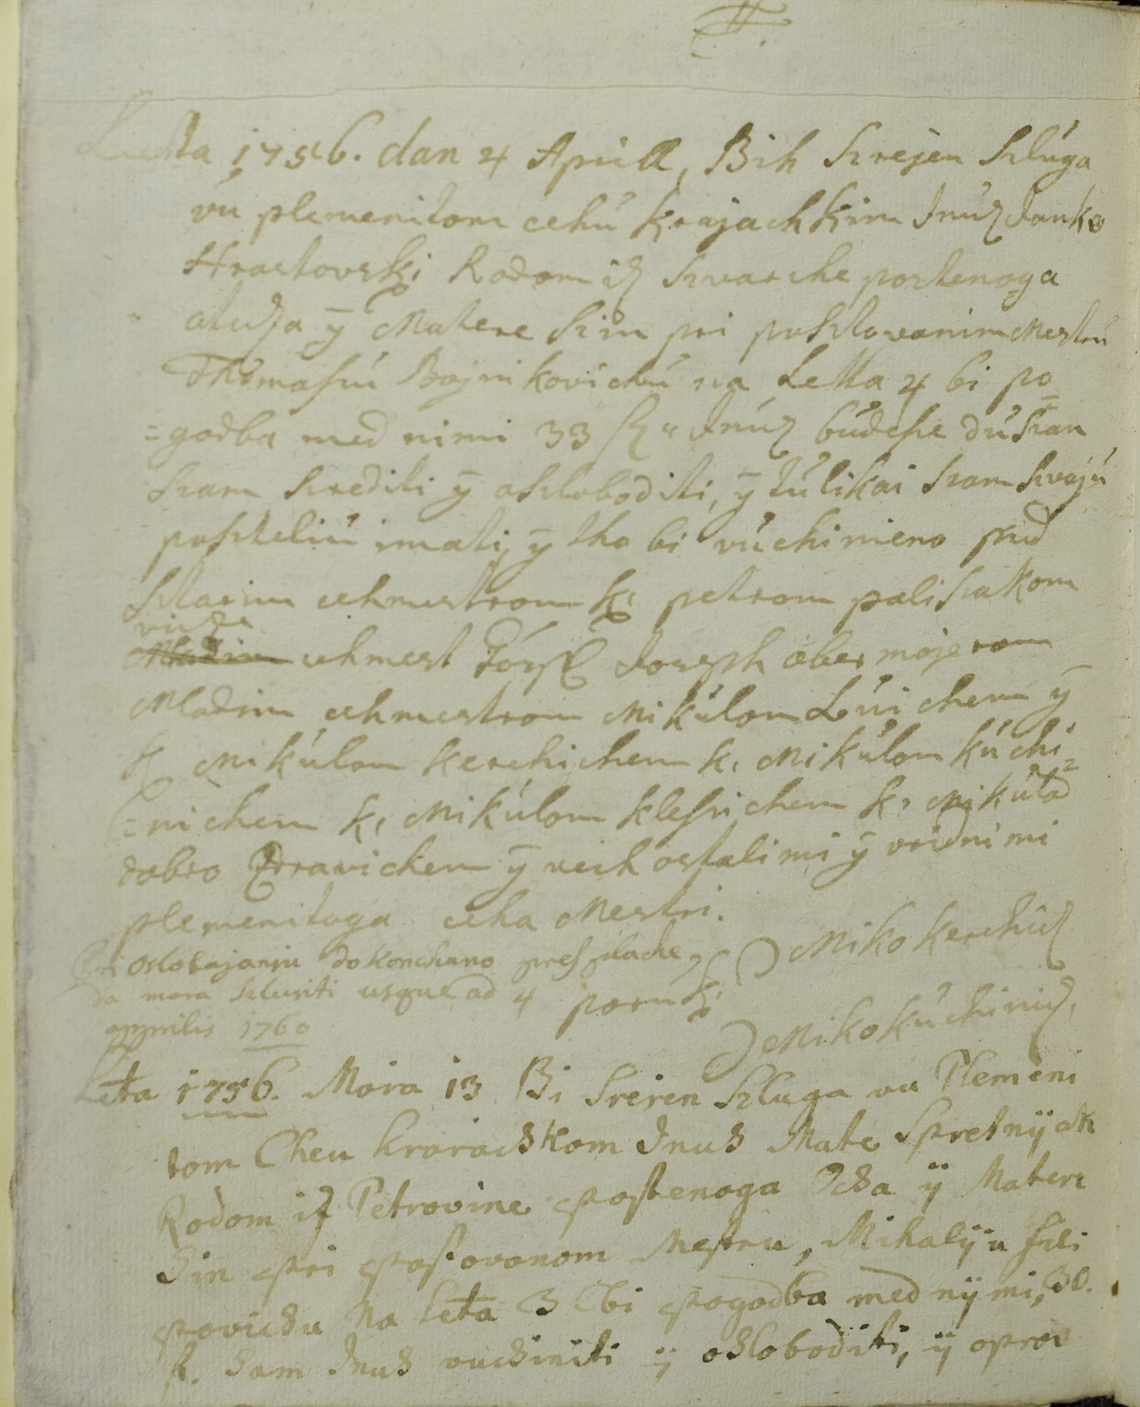 Letta 1756. dan 4 Aprill, Bih Szrejen Szluga
vu plemenitom cehu krajachkim Inuz Janko
Hrastovski Rodom iz Szvarche postenoga
otudza ÿ Matere Szin pri postovanim Mestru
Thomassu Bojnikovichu na Letta 4 bi po=
=godba med nimi 33 Inuz budesse dussan
szam szrediti ÿ oszloboditi, ÿ tulikai szam szvoju
poszteliu imati, ÿ tho bi vuchinieno pred
Sztarim cehmestrom k. petrom paliszakom
vicze
Mladim cehmest Josseph obermajerom
Mladim cehmestrom Mikulom Luichem ÿ
k. Mikulom kerchichem k. Mikulom kuchi=
=nichem k. Mikulom klessichem k. Mikula
dobro Zdravichem ÿ vech ostalimi ÿ vridnimi
plemenitoga ceha Mestri.
oslobajanju dokonchano pres plache Miko kerchich
da mora szlusiti usque ad 4 poruk
apprilis 1760
Miko kuchinich,
Leta 1756. Mora 13 Bi Sreren Szluga vu Plemeni
tom Cheu kraraczkom Inus Mate Spretnÿak
Rodom iz Petrovine postenoga Ocza ÿ Matere
Sin pri postovanom Mestru, Mihalÿu
povichu Na Leta 3 bi pogodba med nÿmi, 30.
f. Sam Inus vuchiniti ÿ osloboditi, ÿ oprav